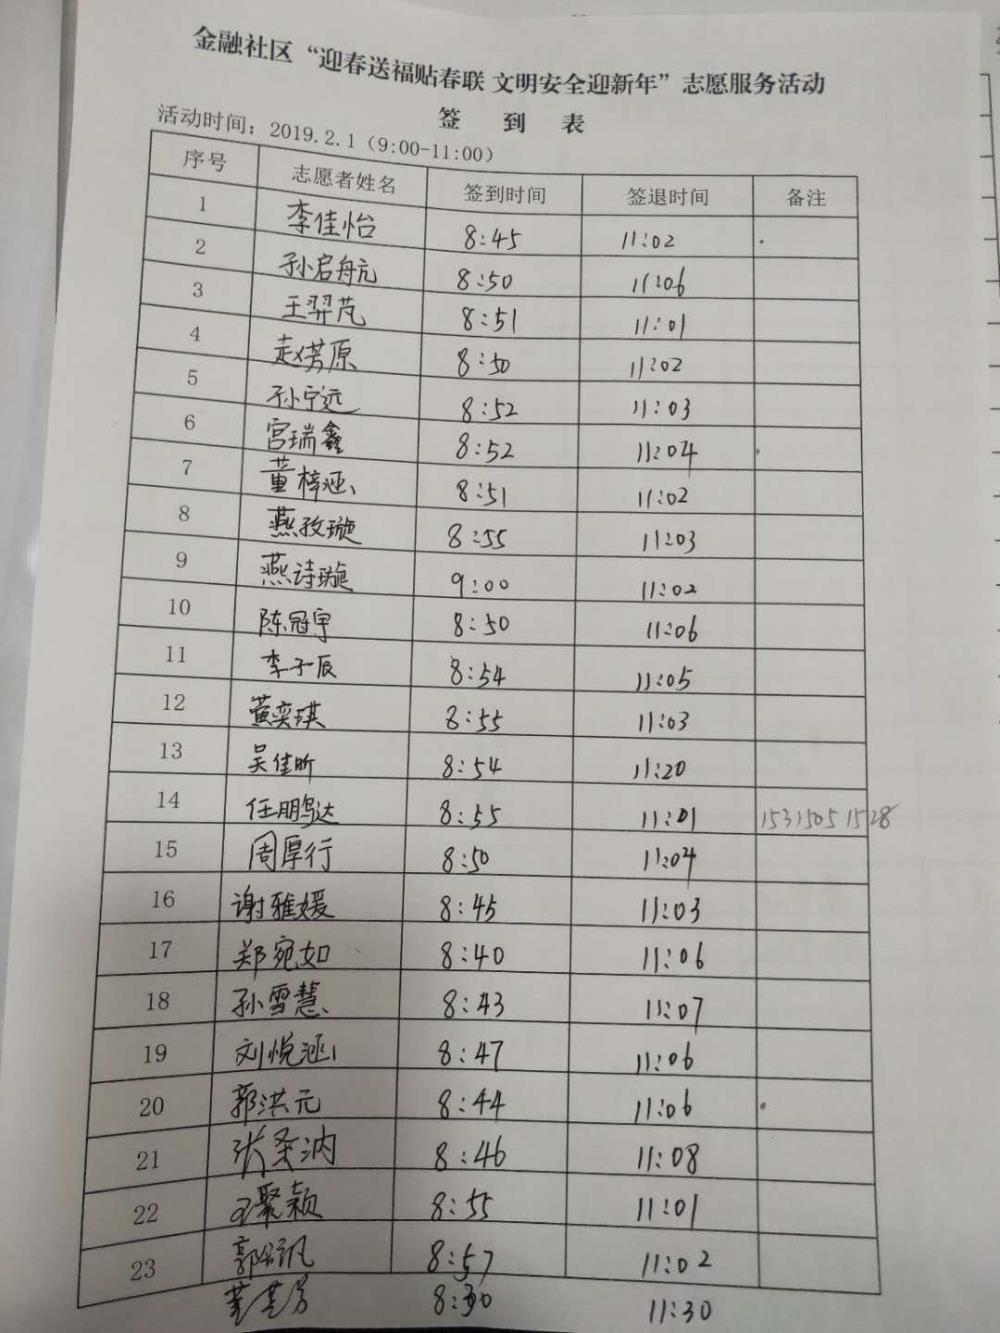 金融社区“迎春送福贴春联 文明安全迎新年”志愿服务活动
签 到 表
活动时间：2019.2.1（9:00-11:00）
序号 志愿者姓名 签到时间 签退时间 备注
1 李佳怡 8:45 11:02
2 孙启航 8:50 11:06
3 王羿芃 8:51 11:01
4 赵偌原 8:50 11:02
5 孙宁远 8:52 11:03
6 宫瑞鑫 8:52 11:04
7 董梓涵 8:51 11:02
8 燕孜璇 8:55 11:03
9 燕诗璇 9:00 11:02
10 陈冠宇 8:50 11:06
11 李子辰 8:54 11:05
12 黄奕琪 8:55 11:03
13 吴佳昕 8:54 11:20
14 任鹏达 8:55 11:01 15315051528
15 周厚行 8:50 11:04
16 谢雅媛 8:45 11:03
17 郑宛如 8:40 11:06
18 孙雪慧 8:43 11:07
19 刘悦涵 8:47 11:06
20 郭洪元 8:44 11:06
21 8:46 11:08
22 王聚颖 8:55 11:01
23 8:57 11:02
8:30 11:30